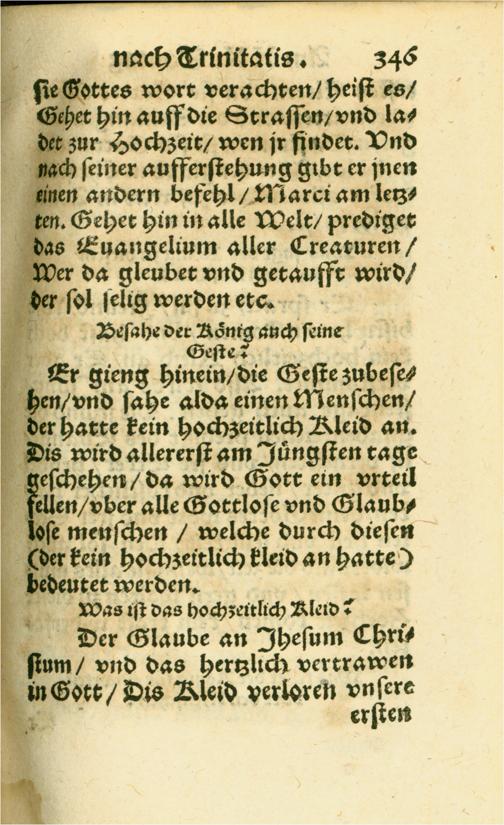 nach Trinitatis. 346
sie Gottes wort verachten/ heist es/
Gehet hin auff die Strassen/ vnd la⸗
det zur Hochzeit/ wen jr findet. Vnd
nach seiner aufferstehung gibt er jnen
einen andern befehl/ Marci am letz⸗
ten. Gehet hin in alle Welt/ prediget
das Euangelium aller Creaturen/
Wer da gleubet vnd getaufft wird/
der sol selig werden etc.
Besahe der König auch seine
Geste?
Er gieng hinein/ die Geste zubese⸗
hen/ vnd sahe alda einen Menschen/
der hatte kein hochzeitlich Kleid an.
Dis wird allererst am Jüngsten tage
geschehen/ da wird Gott ein vrteil
fellen/ vber alle Gottlose vnd Glaub⸗
lose menschen / welche durch diesen
(der kein hochzeitlich kleid an hatte)
bedeutet werden.
Was ist das hochzeitlich Kleid?
Der Glaube an Jhesum Chri⸗
stum/ vnd das hertzlich vertrawen
in Gott/ Dis Kleid verloren vnsere
ersten